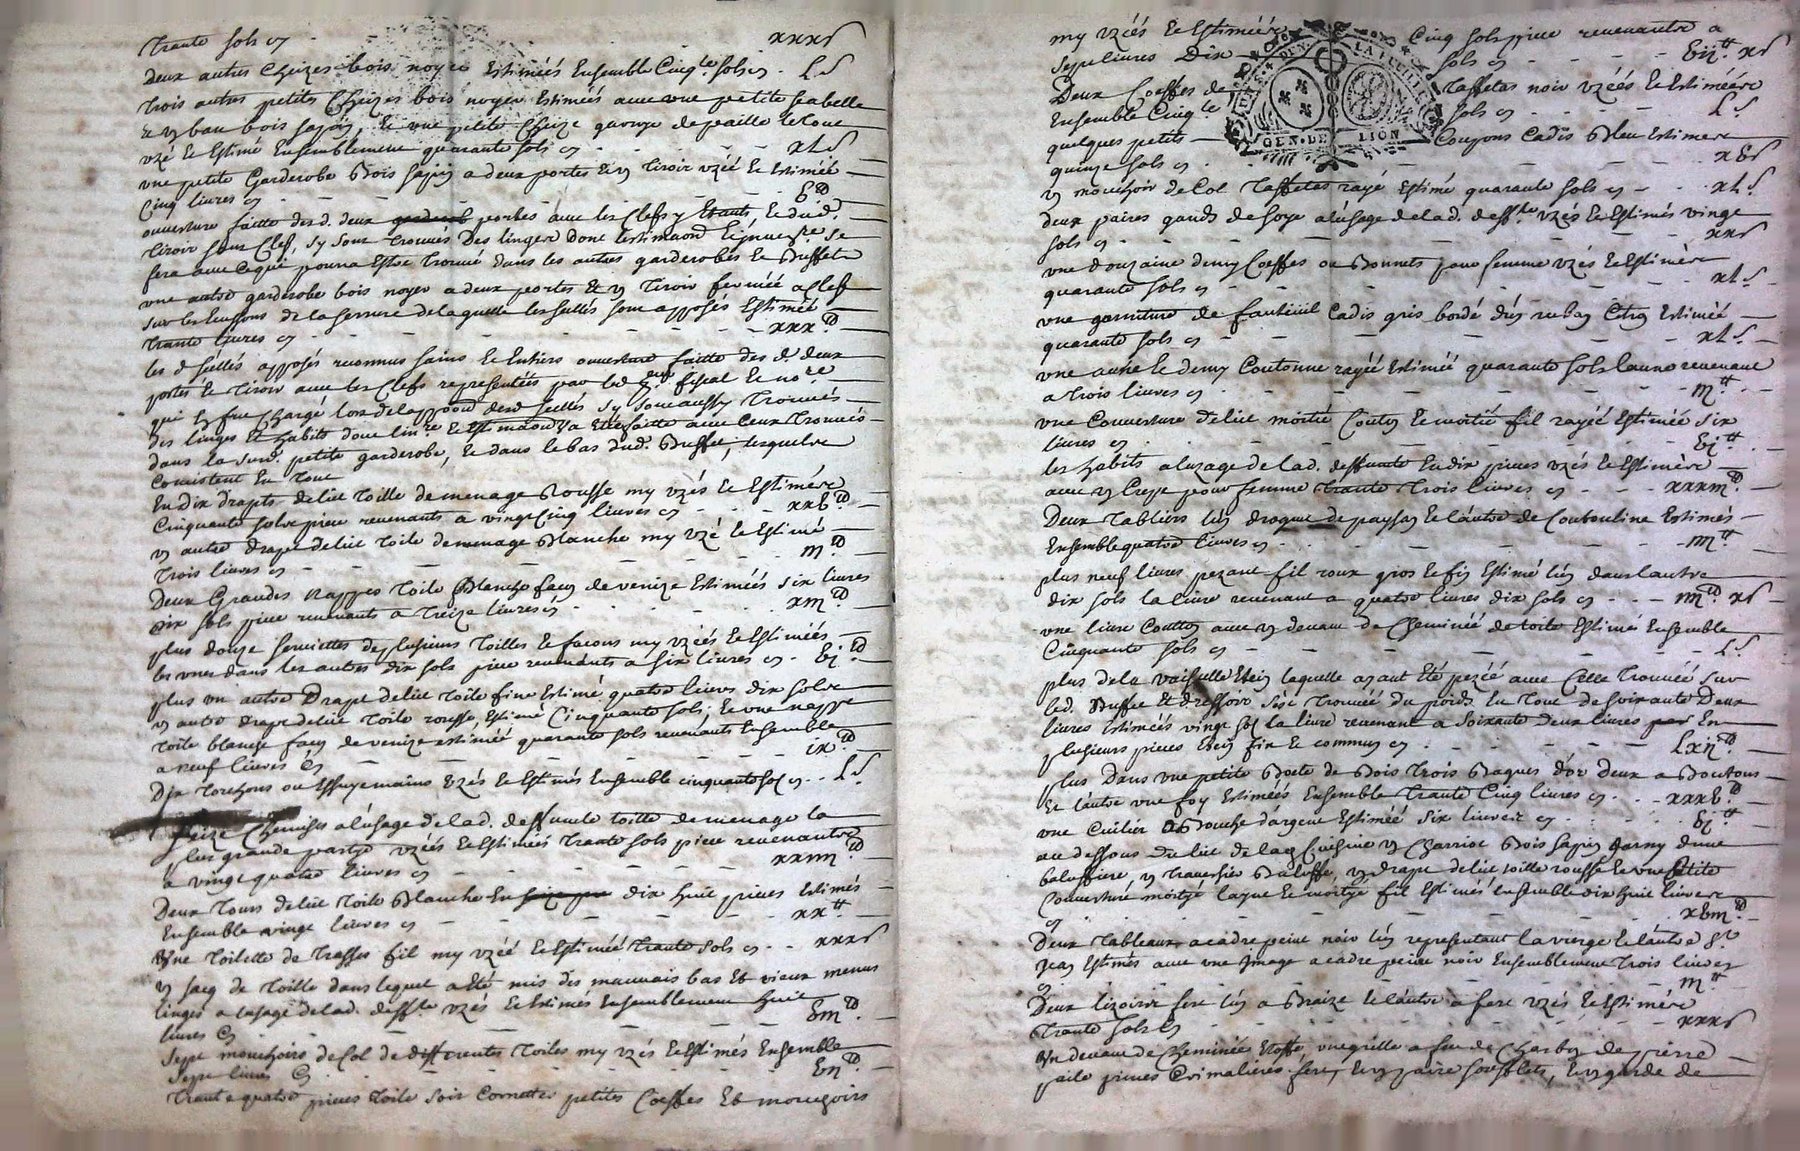 trante sols cy - xxxs
deux autres cheizes bois noyer estimées ensemble cinqte sols cy - Ls
trois autres petites cheizes bois noyer estimées avec une petite
bois sapin, et une petite cheize garnye de paille le tout
uzé et estimé ensemblement quarante sols cy - xLs
une petite garderobe bois sapin a deux portes et un tiroir uzéé et estiméé
cinq livres cy - v tt
ouverture faitte desd. deux portes avec les clefs y estants, et dud.
tiroir sans clef, sy sont trouvés des linges dont lestimaon se
fera avec ce qui pourra estre trouvé dans les autres garderobes et buffets
une autre garderobe bois noyer a deux portes et un tiroir ferméé a clef
sur les de la serrure de laquelle les sellés sont apposés estiméé
trante livres cy - xxx tt
les d. sellés apposés reconnus sains et entiers ouverture faitte des d. deux
portes et tiroir avec les clefs representées par led. fiscal et nore
qui en fut chargé lors de lappoon desd. sellés sy sont aussy trouvés
des linges et habits dont linre et estimaon a été faitte avec ceux trouvés
dans la susd. petite garderobe, et dans le bas dud. buffet, lesquels
consistent en tout
en dix drapts de lit toille de menage rousse my uzés et estimés
cinquante sols piece revenants a vingt cinq livres cy - xxv tt
un autre drapt de lit toile de menage blanche my uzé et estimé
trois livres cy - iii tt
deux grandes nappes toile blanche façon de venize estiméés six livres
dix sols piece revenants a treize livres cy - xiii tt
plus douze serviettes de plusieurs toilles et facons my uzéés et estiméés
les unes dans les autres dix sols piece revenants a six livres cy - vi tt
plus un autre drapt de lit toile fine estimé quatre livres dix sols
un autre drapt de lit toile rousse, estimé cinquante sols; et une nappe
toile blanche façon de venize estiméé quarante sols revenants ensemble
a neuf livres cy - ix tt
dix torchons ou essuye mains uzés et estimés ensemble cinquante sols cy - Ls
seize chemises a l'usage de lad. deffunte toille de menage la
plus grande partye uzéés et estiméés trante sols piece revenantes
a vingt quatre livres cy - xxiiii tt
deux tours de lit toile blanche en dix huit pieces estimés
ensemble vingt livres cy - xx tt
une toilette de fil my uzéé et estiméé trante sols cy - xxxs
un sacq de toille dans lequel a été mis des mauvais bas et vieux menus
linges a lusage de lad. deffte uzés et estimés ensemblement huit
livres cy - viii tt
sept mouchoirs de col de differentes toiles my uzés et estimés ensemble
sept livres cy - vii tt
trante quatre pieces toile soit cornettes petites coeffes et mouchoirs
my uzéés et estiméés cinq sols piece revenantes a
sept livres dix sols cy - vii tt xs
deux coeffes de taffetas noir uzéés et estiméés
ensemble cinqte sols cy - Ls
quelques petits coupons cadis bleu estimés
quinze sols cy - xvs
GEN · DE LION
un mouchoir de col taffetas rayé estimé quarante sols cy - xLs
deux paires gands de soye a lusage de lad. deffte uzés et estimés vingt
sols cy - xxs
une douzaine demy coeffes ou bonnets pour femme uzés et estimés
quarante sols cy - xLs
une garniture de fauteuil cadis gris bordé d'un ruban estiméé
quarante sols cy - xLs
une aune et demy coutonne rayéé estiméé quarante sols laune revenant
a trois livres cy - iii tt
une couverture de lit moitié couton et moitié fil rayéé estiméé six
livres cy - vi tt
les habits a luzage de lad. deffunte en dix pieces uzés et estimés
avec un crepe pour femme trante trois livres cy - xxxiii tt
deux tabliers l'un drogue de paysan et l'autre de estimés
ensemble quatre livres cy - iiii tt
plus neuf livres pezant fil roux gros et fin estimé l'un dans l'autre
dix sols la livre revenant a quatre livres dix sols cy - iiii tt xs
une avec un devant de cheminéé de toile estimé ensemble
cinquante sols cy - Ls
plus de la vaisselle etein laquelle ayant été pezéé avec celle trouvéé sur
led. buffet et dressoir s'est trouvéé du poids en tout de soixante deux
livres estiméés vingt sols la livre revenant a soixante deux livres en
plusieurs pieces etein fin et commun cy - Lxii tt
plus dans une petite boete de bois trois bagues d'or deux a boutons
et l'autre une foy estiméés ensemble trante cinq livres cy - xxxv tt
une cuilier a bouche d'argent estiméé six livres cy - vi tt
au dessous du lit de la cuisine un charriot bois sapin garny d'une
baluffiere un traversier baluffe, un drapt de lit toille rousse et une petite
couverture moityé laine et moityé fil estimés ensemble dix huit livres
cy - xviii tt
deux tableaux a cadre peint noir l'un representant la vierge et l'autre St
jean estimés avec une image a cadre peint noir ensemblement trois livres
cy - iii tt
deux fere l'un a braize et l'autre a fere uzés et estimés
trante sols cy - xxxs
un devant de cheminéé etoffe, une grille a feu de charbon de pierre
faite pieces fere, et un paire soufflets, et un garde de